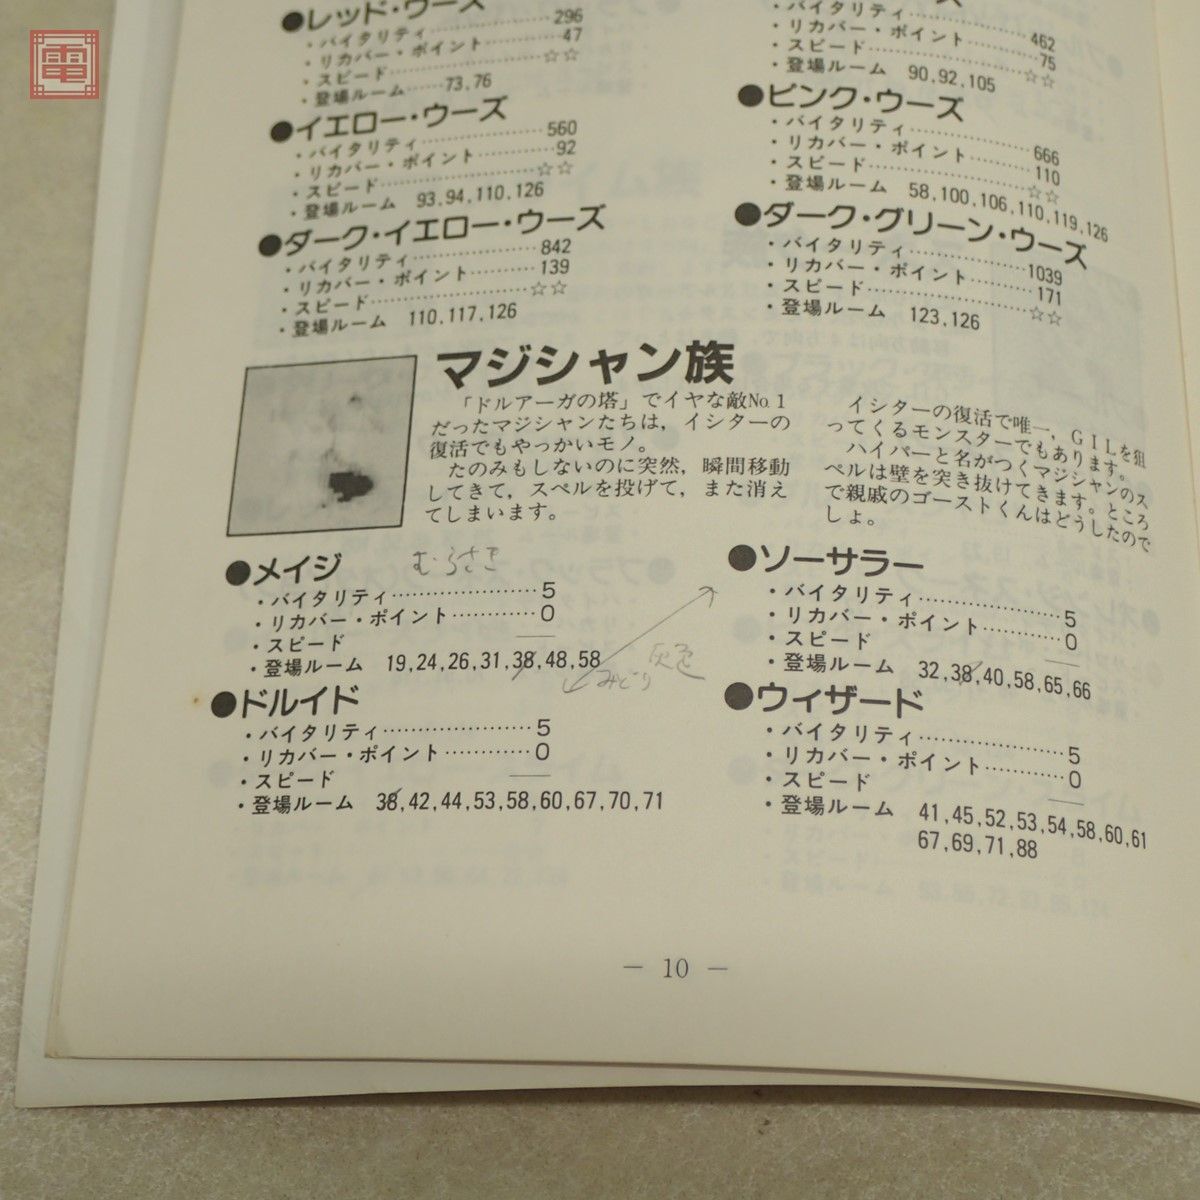 電
●レッド・ウーズ
・バイタリティ……………296
・リカバー・ポイント………47
・スピード………………☆☆
・登場ルーム……73,76
●イエロー・ウーズ
・バイタリティ……………560
・リカバー・ポイント………92
・スピード………………☆☆
・登場ルーム 93,94,110,126
●ダーク・イエロー・ウーズ
・バイタリティ……………842
・リカバー・ポイント………139
・スピード………………☆☆
・登場ルーム 110,117,126
・バイタリティ……………462
・リカバー・ポイント………75
・スピード………………☆☆
・登場ルーム 90,92,105
●ピンク・ウーズ
・バイタリティ……………666
・リカバー・ポイント………110
・スピード………………☆☆
・登場ルーム 58,100,106,110,119,126
●ダーク・グリーン・ウーズ
・バイタリティ……………1039
・リカバー・ポイント………171
・スピード………………☆☆
・登場ルーム 123,126
マジシャン族
「ドルアーガの塔」でイヤな敵No.1
だったマジシャンたちは，イシターの
復活でもやっかいモノ。
たのみもしないのに突然，瞬間移動
してきて，スペルを投げて，また消え
てしまいます。
イシターの復活で唯一，GILを狙
ってくるモンスターでもあります。
ハイパーと名がつくマジシャンのス
ペルは壁を突き抜けてきます。ところ
で親戚のゴーストくんはどうしたので
しょ。
●メイジ むらさき
・バイタリティ……………5
・リカバー・ポイント………0
・スピード ――
・登場ルーム 19,24,26,31,38,48,58
みどり 灰色
●ドルイド
・バイタリティ……………5
・リカバー・ポイント…………0
・スピード ――
・登場ルーム 38,42,44,53,58,60,67,70,71
●ソーサラー
・バイタリティ……………5
・リカバー・ポイント…………0
・スピード ――
・登場ルーム 32,38,40,58,65,66
●ウィザード
・バイタリティ……………5
・リカバー・ポイント…………0
・スピード ――
・登場ルーム 41,45,52,53,54,58,60,61
67,69,71,88
― 10 ―